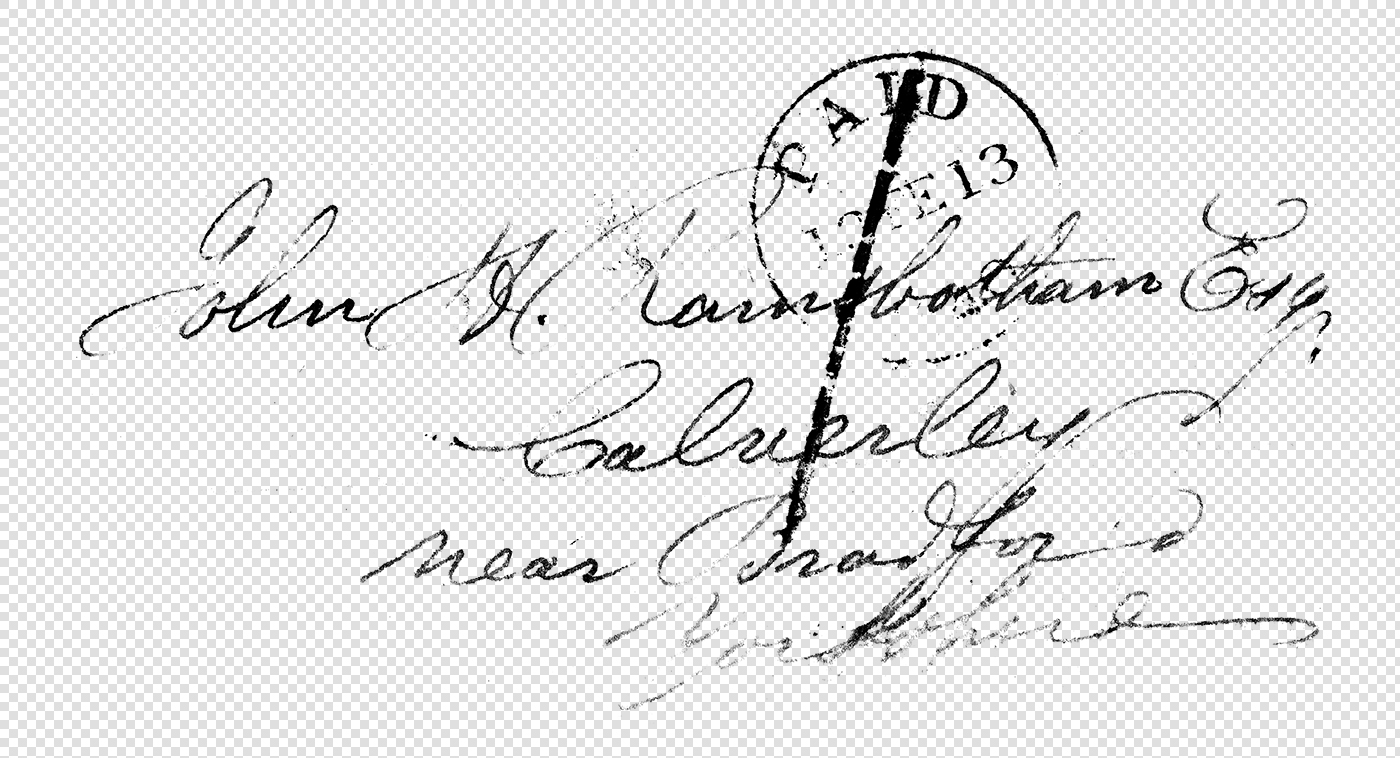 PAID
13
John H. Ramsbotham Esq.
Calverley
near Bradford
Yorkshire